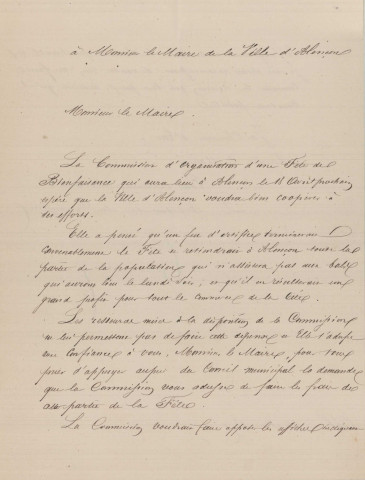 à Monsieur le Maire de la Ville d'Alençon
Monsieur le Maire,
La Commission d'Organisation d'une Fête de
Bienfaisance qui aura lieu à Alençon le 18 Avril prochain
espère que la Ville d'Alençon voudra bien coopérer à
ses efforts.
Elle a pensé qu'un feu d'artifice terminerait
convenablement la Fête et retiendrait à Alençon toute la
partie de la population qui n'assistera pas aux bals
qui auront lieu le lundi soir, et qu'il en résulterait un
grand profit pour tout le commerce de la Ville.
Les ressources mises à la disposition de la Commission
ne lui permettent pas de faire cette dépense et Elle s'adresse
avec confiance à vous, Monsieur le Maire, pour vous
prier d'appuyer auprès du Conseil municipal la demande
que la Commission vous adresse de faire les frais de
cette partie de la Fête.
La Commission voudrait faire apposer les affiches